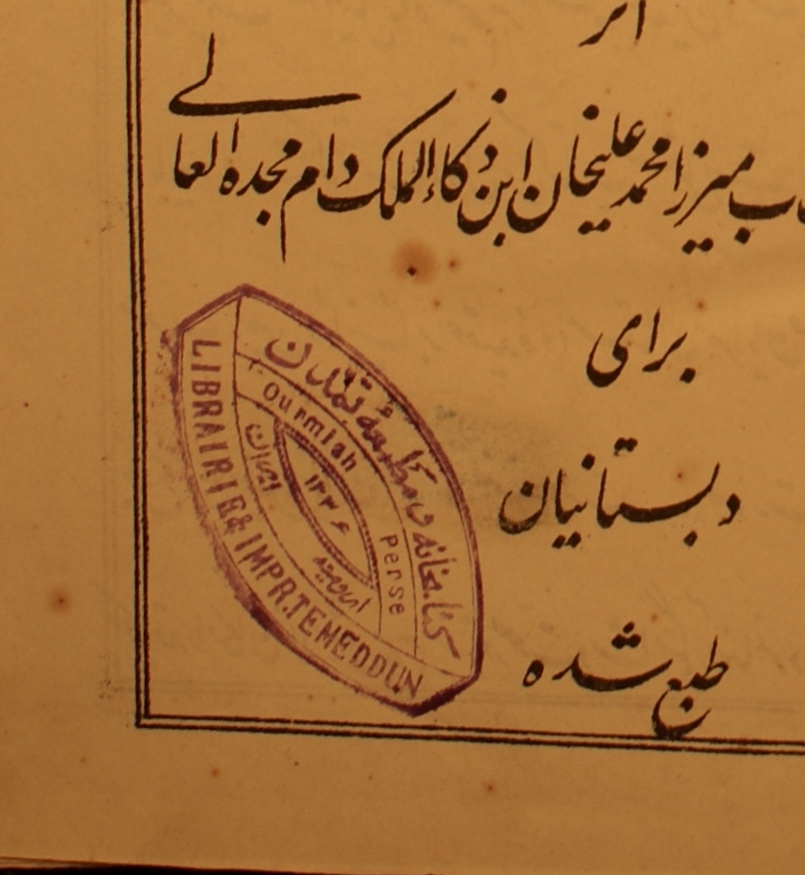 اثر
میرزا محمد علیخان ابن ذکاءالملک دام مجده العا
لے
برای
دبستانیان
طبع شده
کتابخانه و مطبعهٔ تمدن
Ourmiah
Perse
ایران
ارومیه
۱۳۳۶
LIBRAIRIE & IMPR. TEMEDDUN